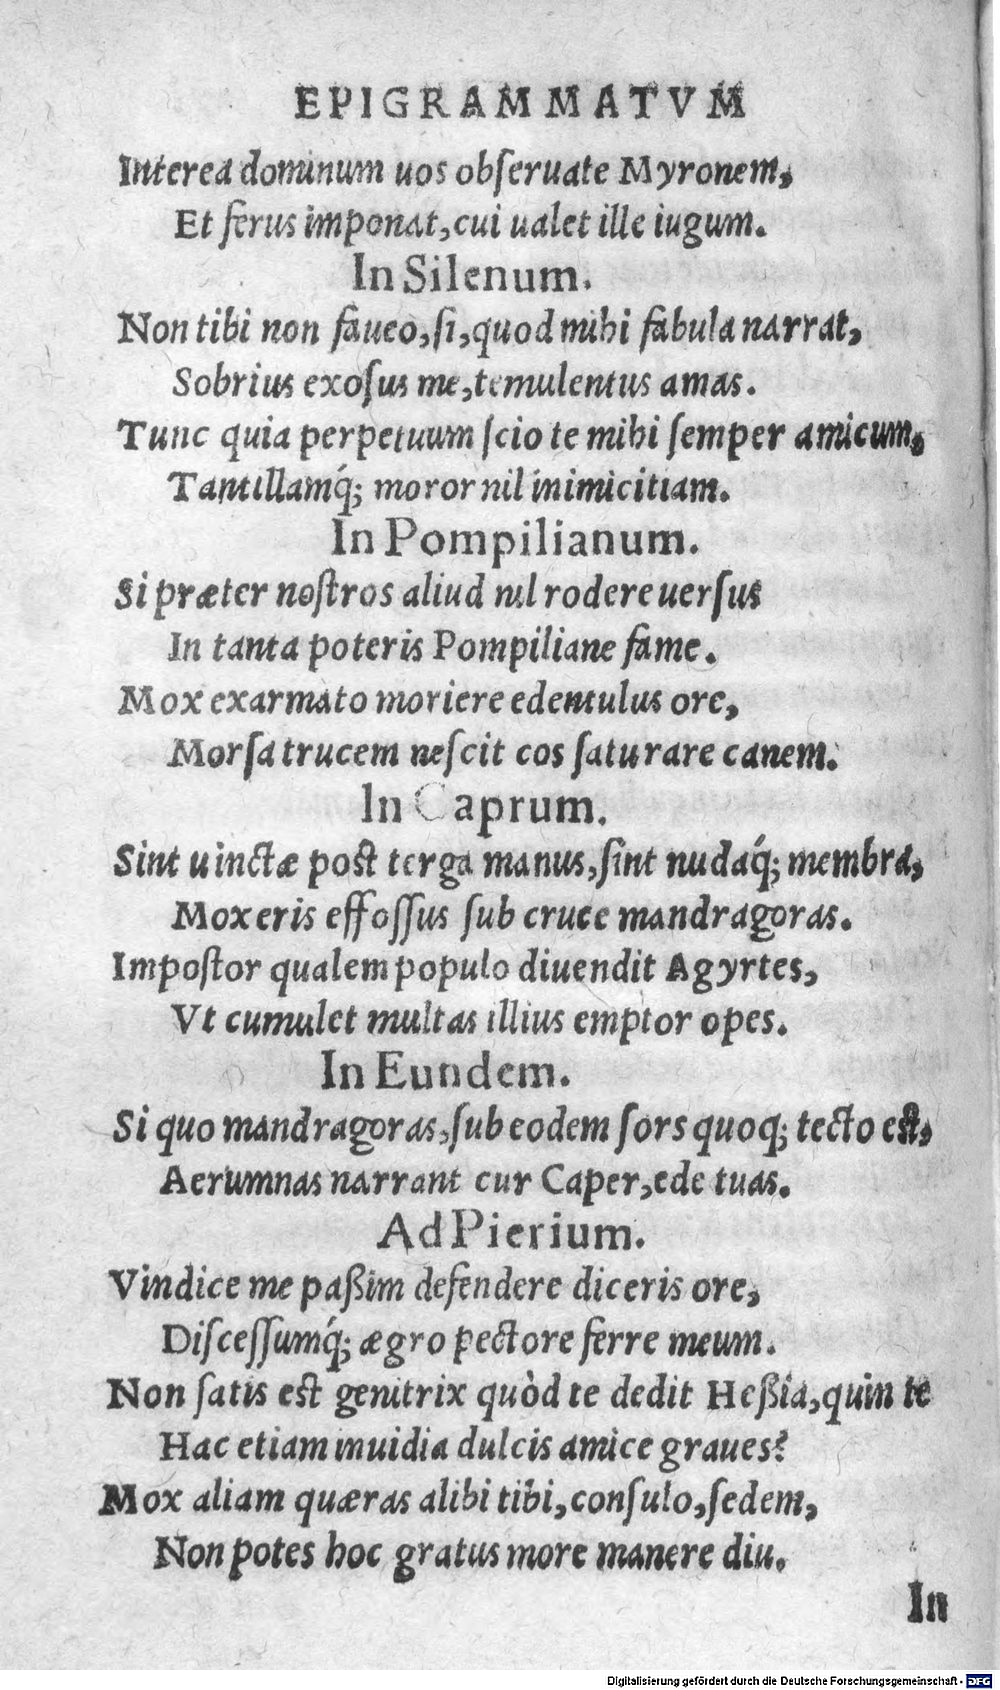 EPIGRAMMATVM
Interea dominum uos obſeruate Myronem,
Et ferus imponat, cui ualet ille iugum.
In Silenum.
Non tibi non faueo, ſi, quod mihi fabula narrat,
Sobrius exoſus me, temulentus amas.
Tunc quia perpetuum ſcio te mihi ſemper amicum,
Tantillamq́; moror nil inimicitiam.
In Pompilianum.
Si præter noſtros aliud nil rodere uerſus
In tanta poteris Pompiliane fame.
Mox exarmato moriere edentulus ore,
Morſa trucem neſcit cos ſaturare canem.
In Caprum.
Sint uinctæ poſt terga manus, ſint nudaq́; membra,
Mox eris effoſſus ſub cruce mandragoras.
Impoſtor qualem populo diuendit Agyrtes,
Vt cumulet multas illius emptor opes.
In Eundem.
Si quo mandragoras, ſub eodem ſors quoq; tecto eſt,
Aerumnas narrant cur Caper, ede tuas.
Ad Pierium.
Vindice me paßim defendere diceris ore,
Diſceſſumq́; ægro pectore ferre meum.
Non ſatis eſt genitrix quòd te dedit Heßia, quin te
Hac etiam inuidia dulcis amice graues?
Mox aliam quæras alibi tibi, conſulo, ſedem,
Non potes hoc gratus more manere diu.
In
Digitalisierung gefördert durch die Deutsche Forschungsgemeinschaft - DFG